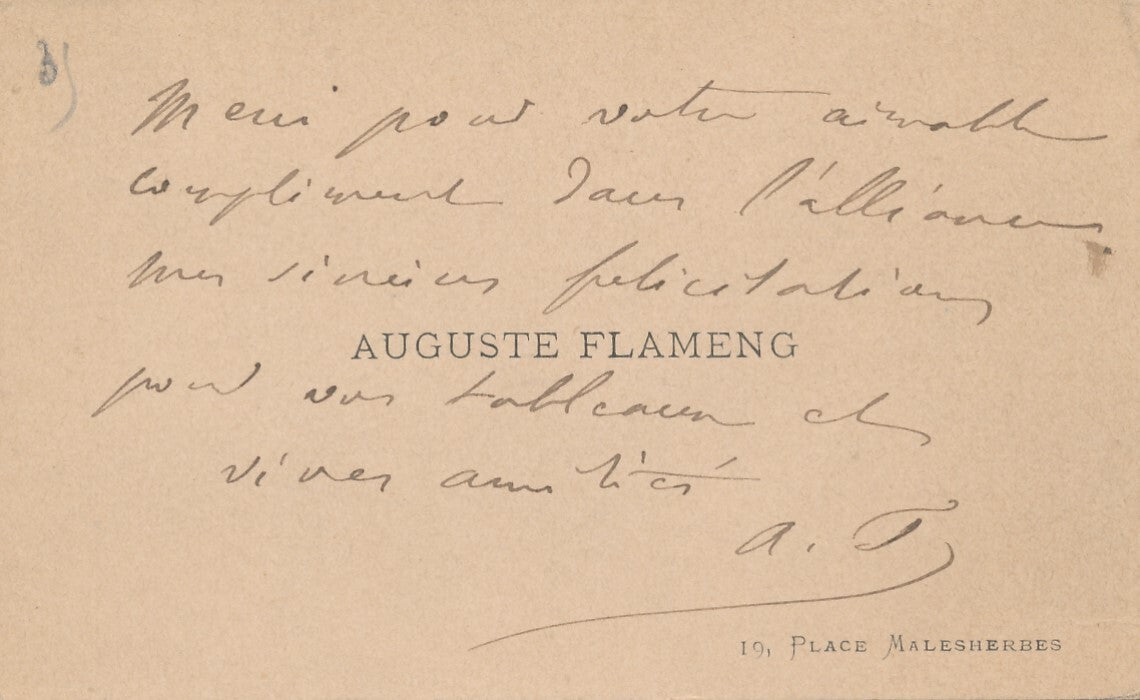 Merci pour votre aimable
compliment dans l'alliance
mes sincères felicitations
AUGUSTE FLAMENG
pour vos tableaux et
vives amitiés
A. F
19, PLACE MALESHERBES